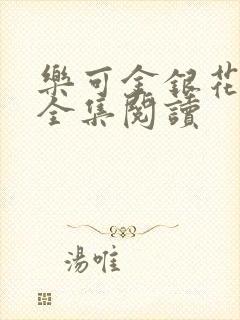 樂可金銀花
全集閱讀
湯唯